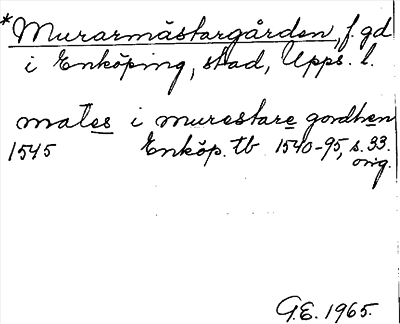 *Murarmästargården, f. gd
i Enköping, stad, Upps. l.
mates i murestare gordhen
1545 Enköp. tb 1540-95, s. 93.
orig.
G.E. 1965.